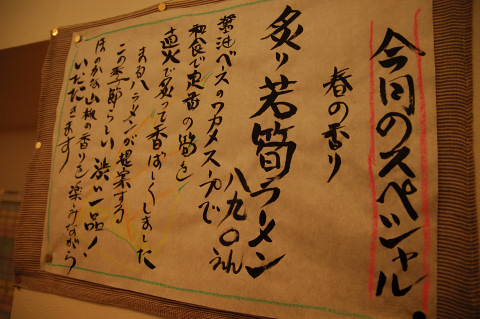 今日のスペシャル。
春の香り
炙り若筍ラーメン
八九〇えん
ベースのワカメスープで
和食で定番の筍を
直火で炙って香ばしくしました
ラーメンが提案する
この季節らしい渋い一品!
ほのかな山椒の香りを楽しみながら、
いただきます